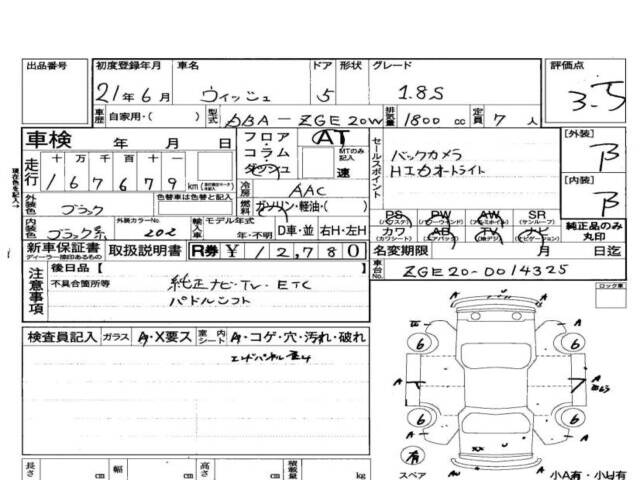 出品番号
初度登録年月 車名 ドア 形状 グレード 評価点
21年6月 ウィッシュ 5 1.8S 3.5
車歴 自家用・( ) 型式 ABA-ZGE20W 排気量 1800 cc 定員 7人
車検 年 月 日
フロア コラム ダッシュ AT MTのみ記入 速
現在色を記入→
走行 十万千百十一 167679 km
冷房 AAC
燃料 ガソリン・軽油・( )
外装色 ブラック 色替車は色替と記入
内装色 ブラック系 外装カラーNo. 202
輸入車 モデル年式 年・不明 D車・並 右H・左H
セールスポイント
バックカメラ
オートライト
[外装] B
[内装] B
PS (パワステ) PW (パワーウインド) AW (アルミホイル) SR (サンルーフ)
カワ (カワシート) AB (エアバック) TV ナビ (ナビゲーション)
純正品のみ丸印
新車保証書 ディーラー捺印あるもの 取扱説明書 R券 ¥12,780
名変期限 月 日迄
車台No. ZGE20-0014325
注意事項
後日品 [ ]
不具合箇所等 純正ナビ・TV・ETC
パドルシフト
ロック車
検査員記入 ガラス A・X要ス 室内シート A・コゲ・穴・汚れ・破れ
長さ cm 幅 cm 高さ cm 積載量 kg
A U A
6 6
A A
6 6
A A
xx U
有
スペア
A
小A有・小U有